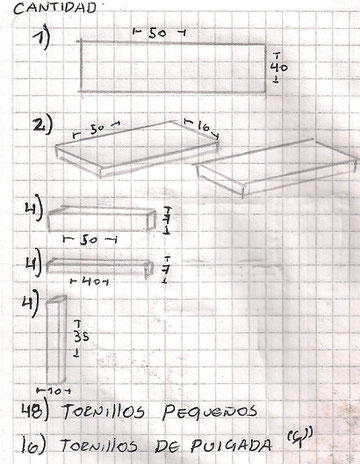 CANTIDAD
1) 50
40
2) 50 16
4) 7
50
4) 7
40
4) 35
10
48) TORNILLOS PEQUEÑOS
16) TORNILLOS DE PULGADA